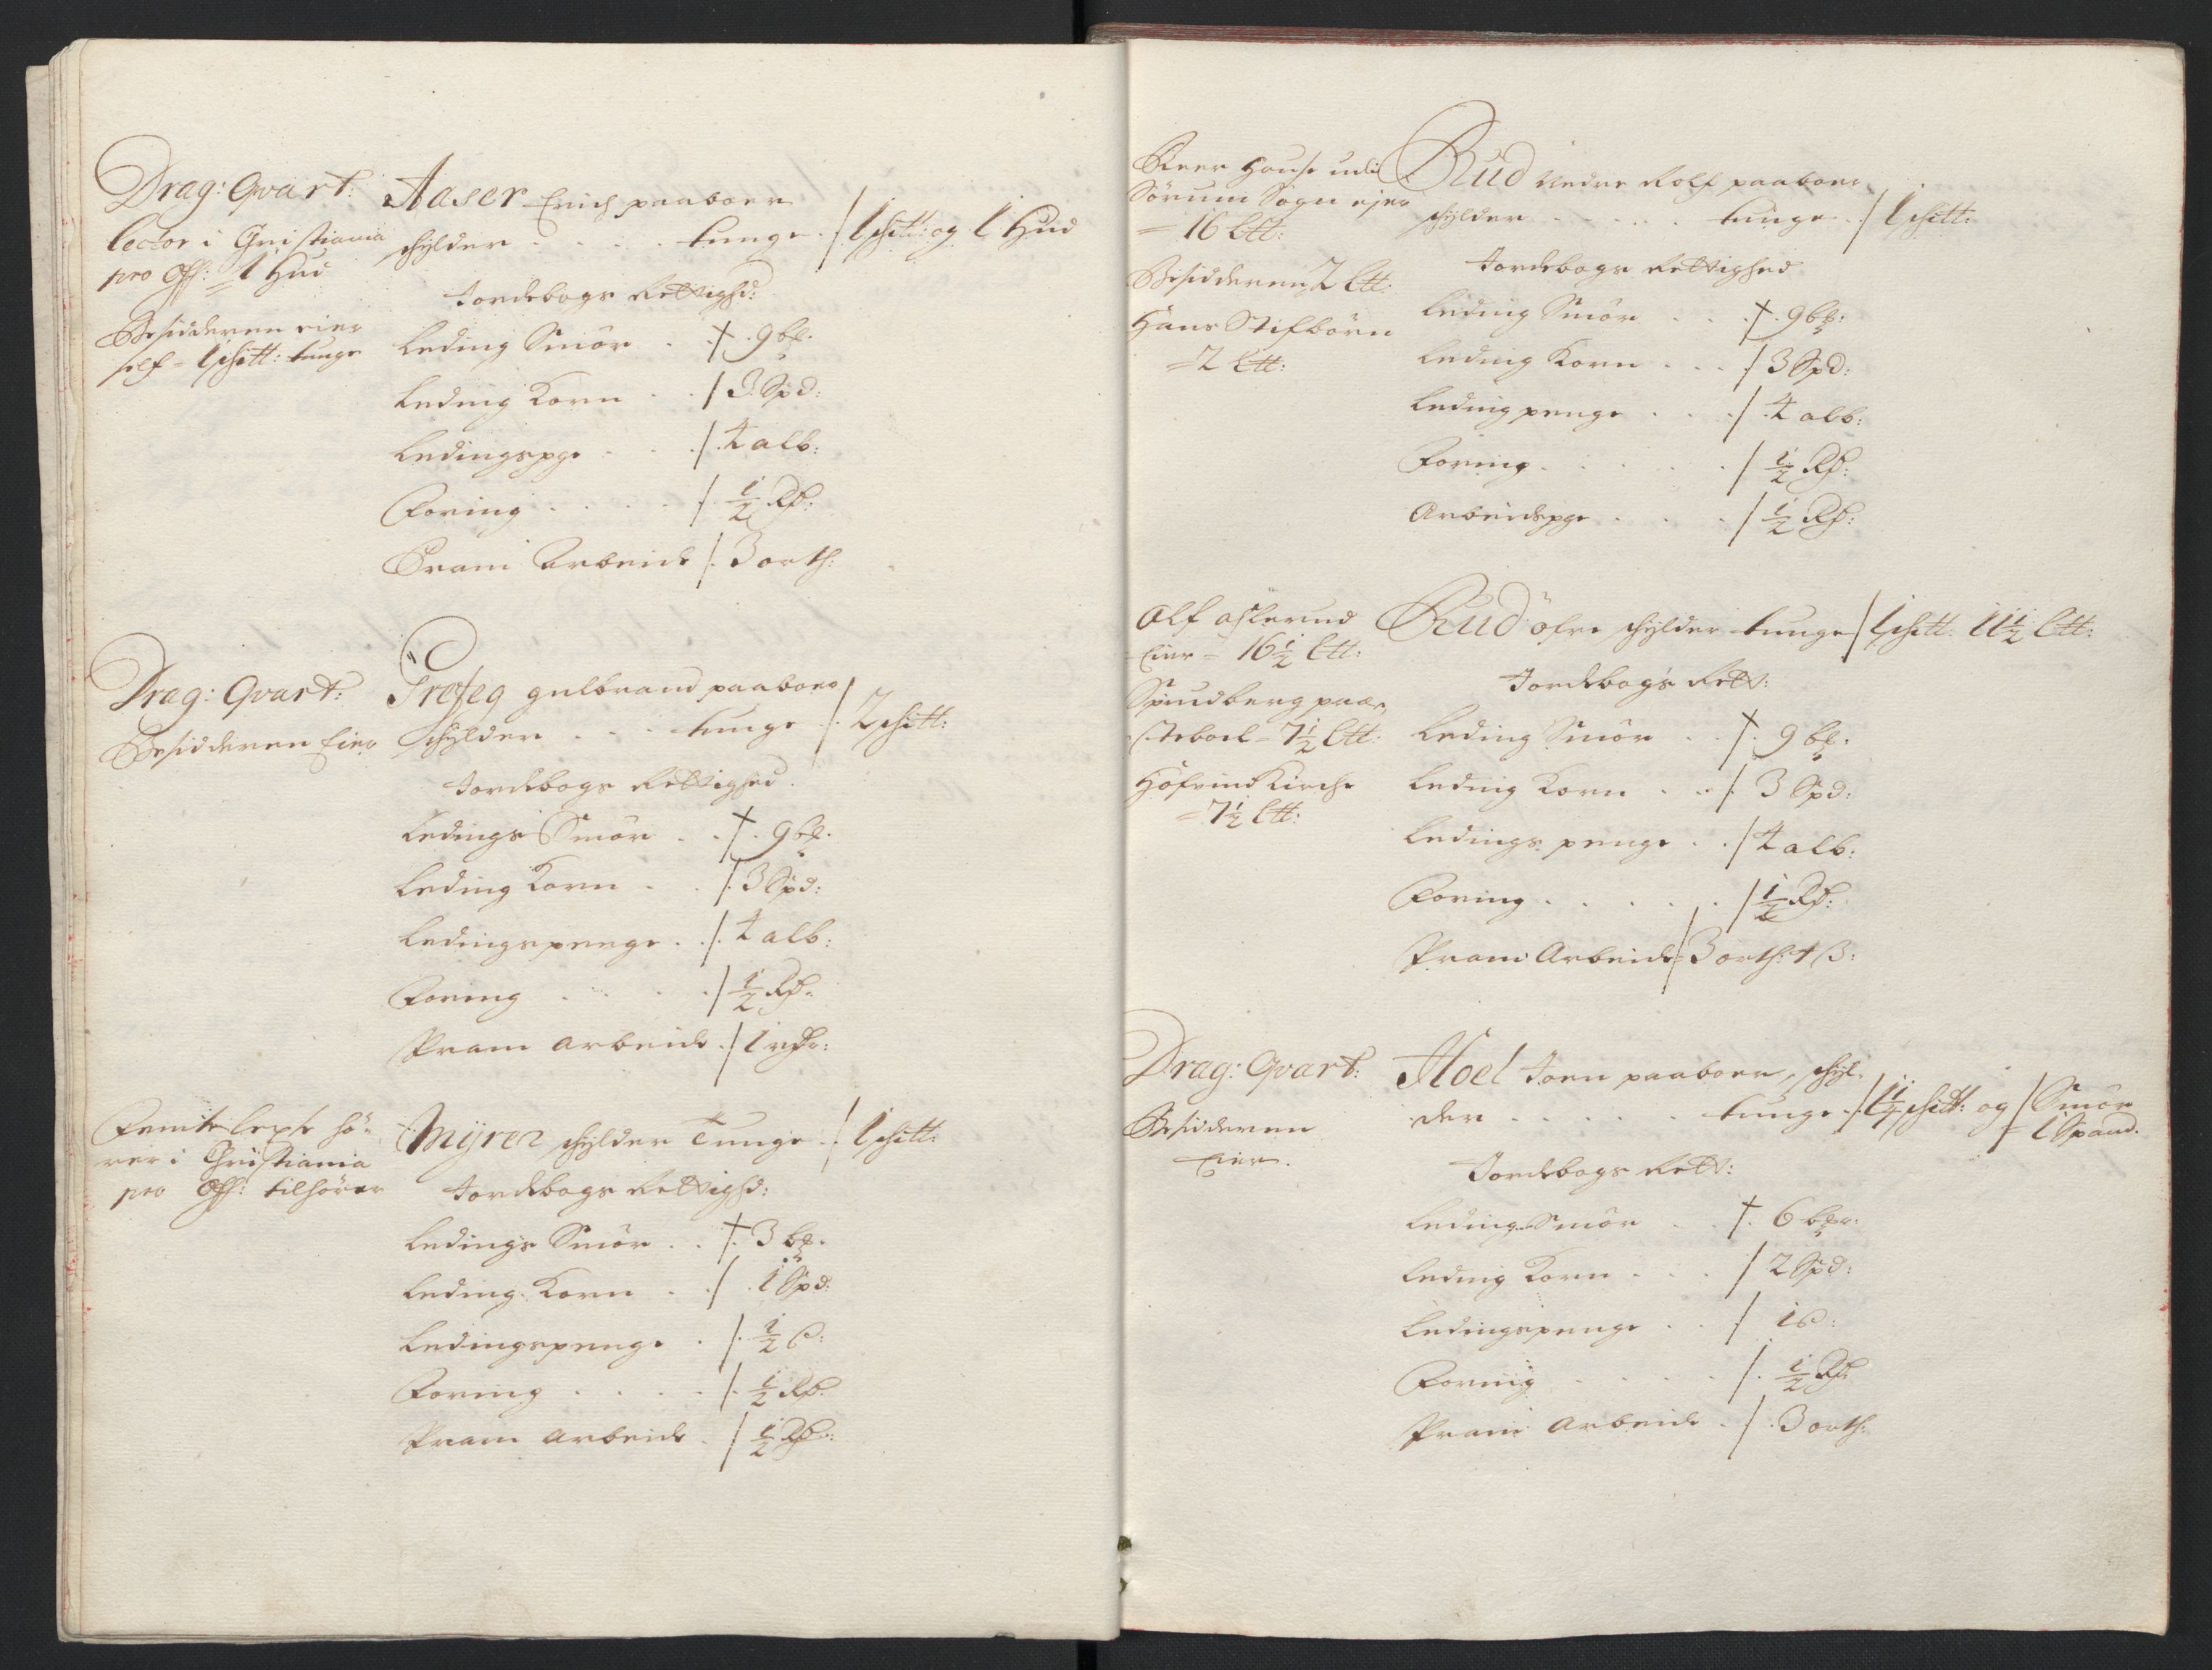 Drag: Qvart:
lector i Christiania
pro Off: 1 Hud
Besidderen eier
self = 1 schitt: tunge
Aaser Erich paaboer
schylder . . . . tunge . / 1 schitt: og 1 Hud
Jordebogs Rettighd:
Leding Smör . . † . 9 bl.
Leding Korn . . / 3 Spd:
Ledingspge . . . / . 4 alb:
Foring . . . . / . ½ Rd:
Pram Arbeide / . 3 orth:
Drag: Qvart:
Besidderen Eier
Trefeg gulbrand paaboer
schylder . . . tunge / . 2 schitt:
Jordebogs Rettighed.
Ledings Smör . . † . 9 bl.
Leding Korn . . / . 3 Spd:
Ledingspenge . . / . 4 alb:
Foring . . . . / ½ Rd.
Pram arbeide . / 1 rdr:
Femte lexse hö-
rer i Christiania
pro Off: tilhörer
Myrer schylder Tunge . / . 1 schitt:
Jordebogs Rettighd:
Ledings Smör . . † . 3 bl.
Leding Korn . . / . 1 Spd:
Ledingspenge . / . ½ ß:
Foring . . . . / . ½ Rd.
Pram arbeide . / ½ Rd:
Peer House udi
Sörum Sogn ejer
= 16 Ltt:
Besidderen 2 Ltt:
Hans Stifbörn
= 2 Ltt:
Rud Nedre Rolf paaboer
schylder . . . . . tunge . / 1 schitt:
Jordebogs Rettighed
Leding Smör . . . † . 9 bl:
Leding Korn . . . / 3 Spd:
Leding penge . . . / . 4 alb:
Foring . . . . . / ½ Rd:
Arbeidspge . . . / ½ Rd:
Olf Aslerud
Eier = 16½ Ltt:
Spudberg præ-
steboel = 7½ Ltt:
Höfvind Kirche
= 7½ Ltt:
Rud öfre schylder tunge / 1 schitt. 11½ Ltt:
Jordebogs Rett:
Leding Smör . . † . 9 bl.
Leding Korn . . / . 3 Spd:
Ledings penge . . / 4 alb:
Foring . . . . . / ½ Rd:
Pram Arbeide / 3 orth: 4 ß:
Drag: Qvart:
Besidderen
Eier.
Hoel Joen paaboer, schyl-
der . . . . . tunge . / . 1¼ schitt: og / Smör
= 1 Spand.
Jordebogs Rett:
Leding Smör . . † . 6 blr.
Leding Korn . . . / 2 Spd:
Ledingspenge . . / 1 ß:
Foring . . . . . / . ½ Rd:
Pram Arbeide . / . 3 orth: